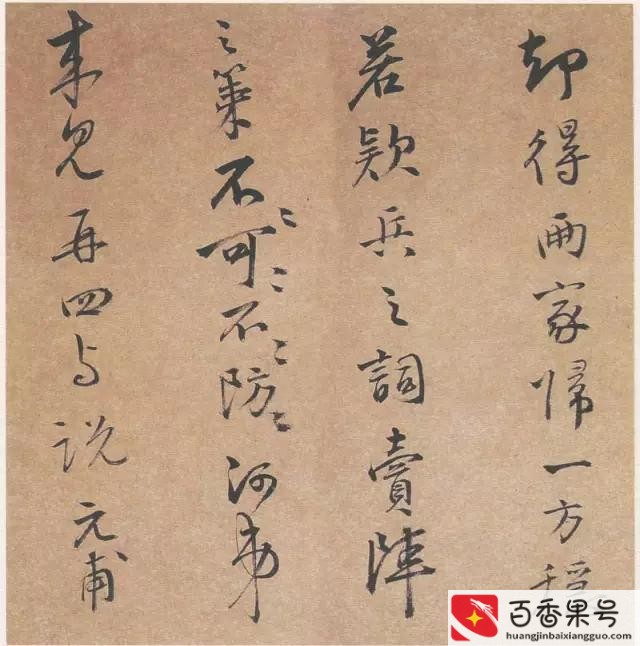 却得兩家歸一方
若欵兵之詞賣陣
之策不〻可〻不〻防〻河
来見再四与说元甫
百香果号
huangjinbaixiangguo.com